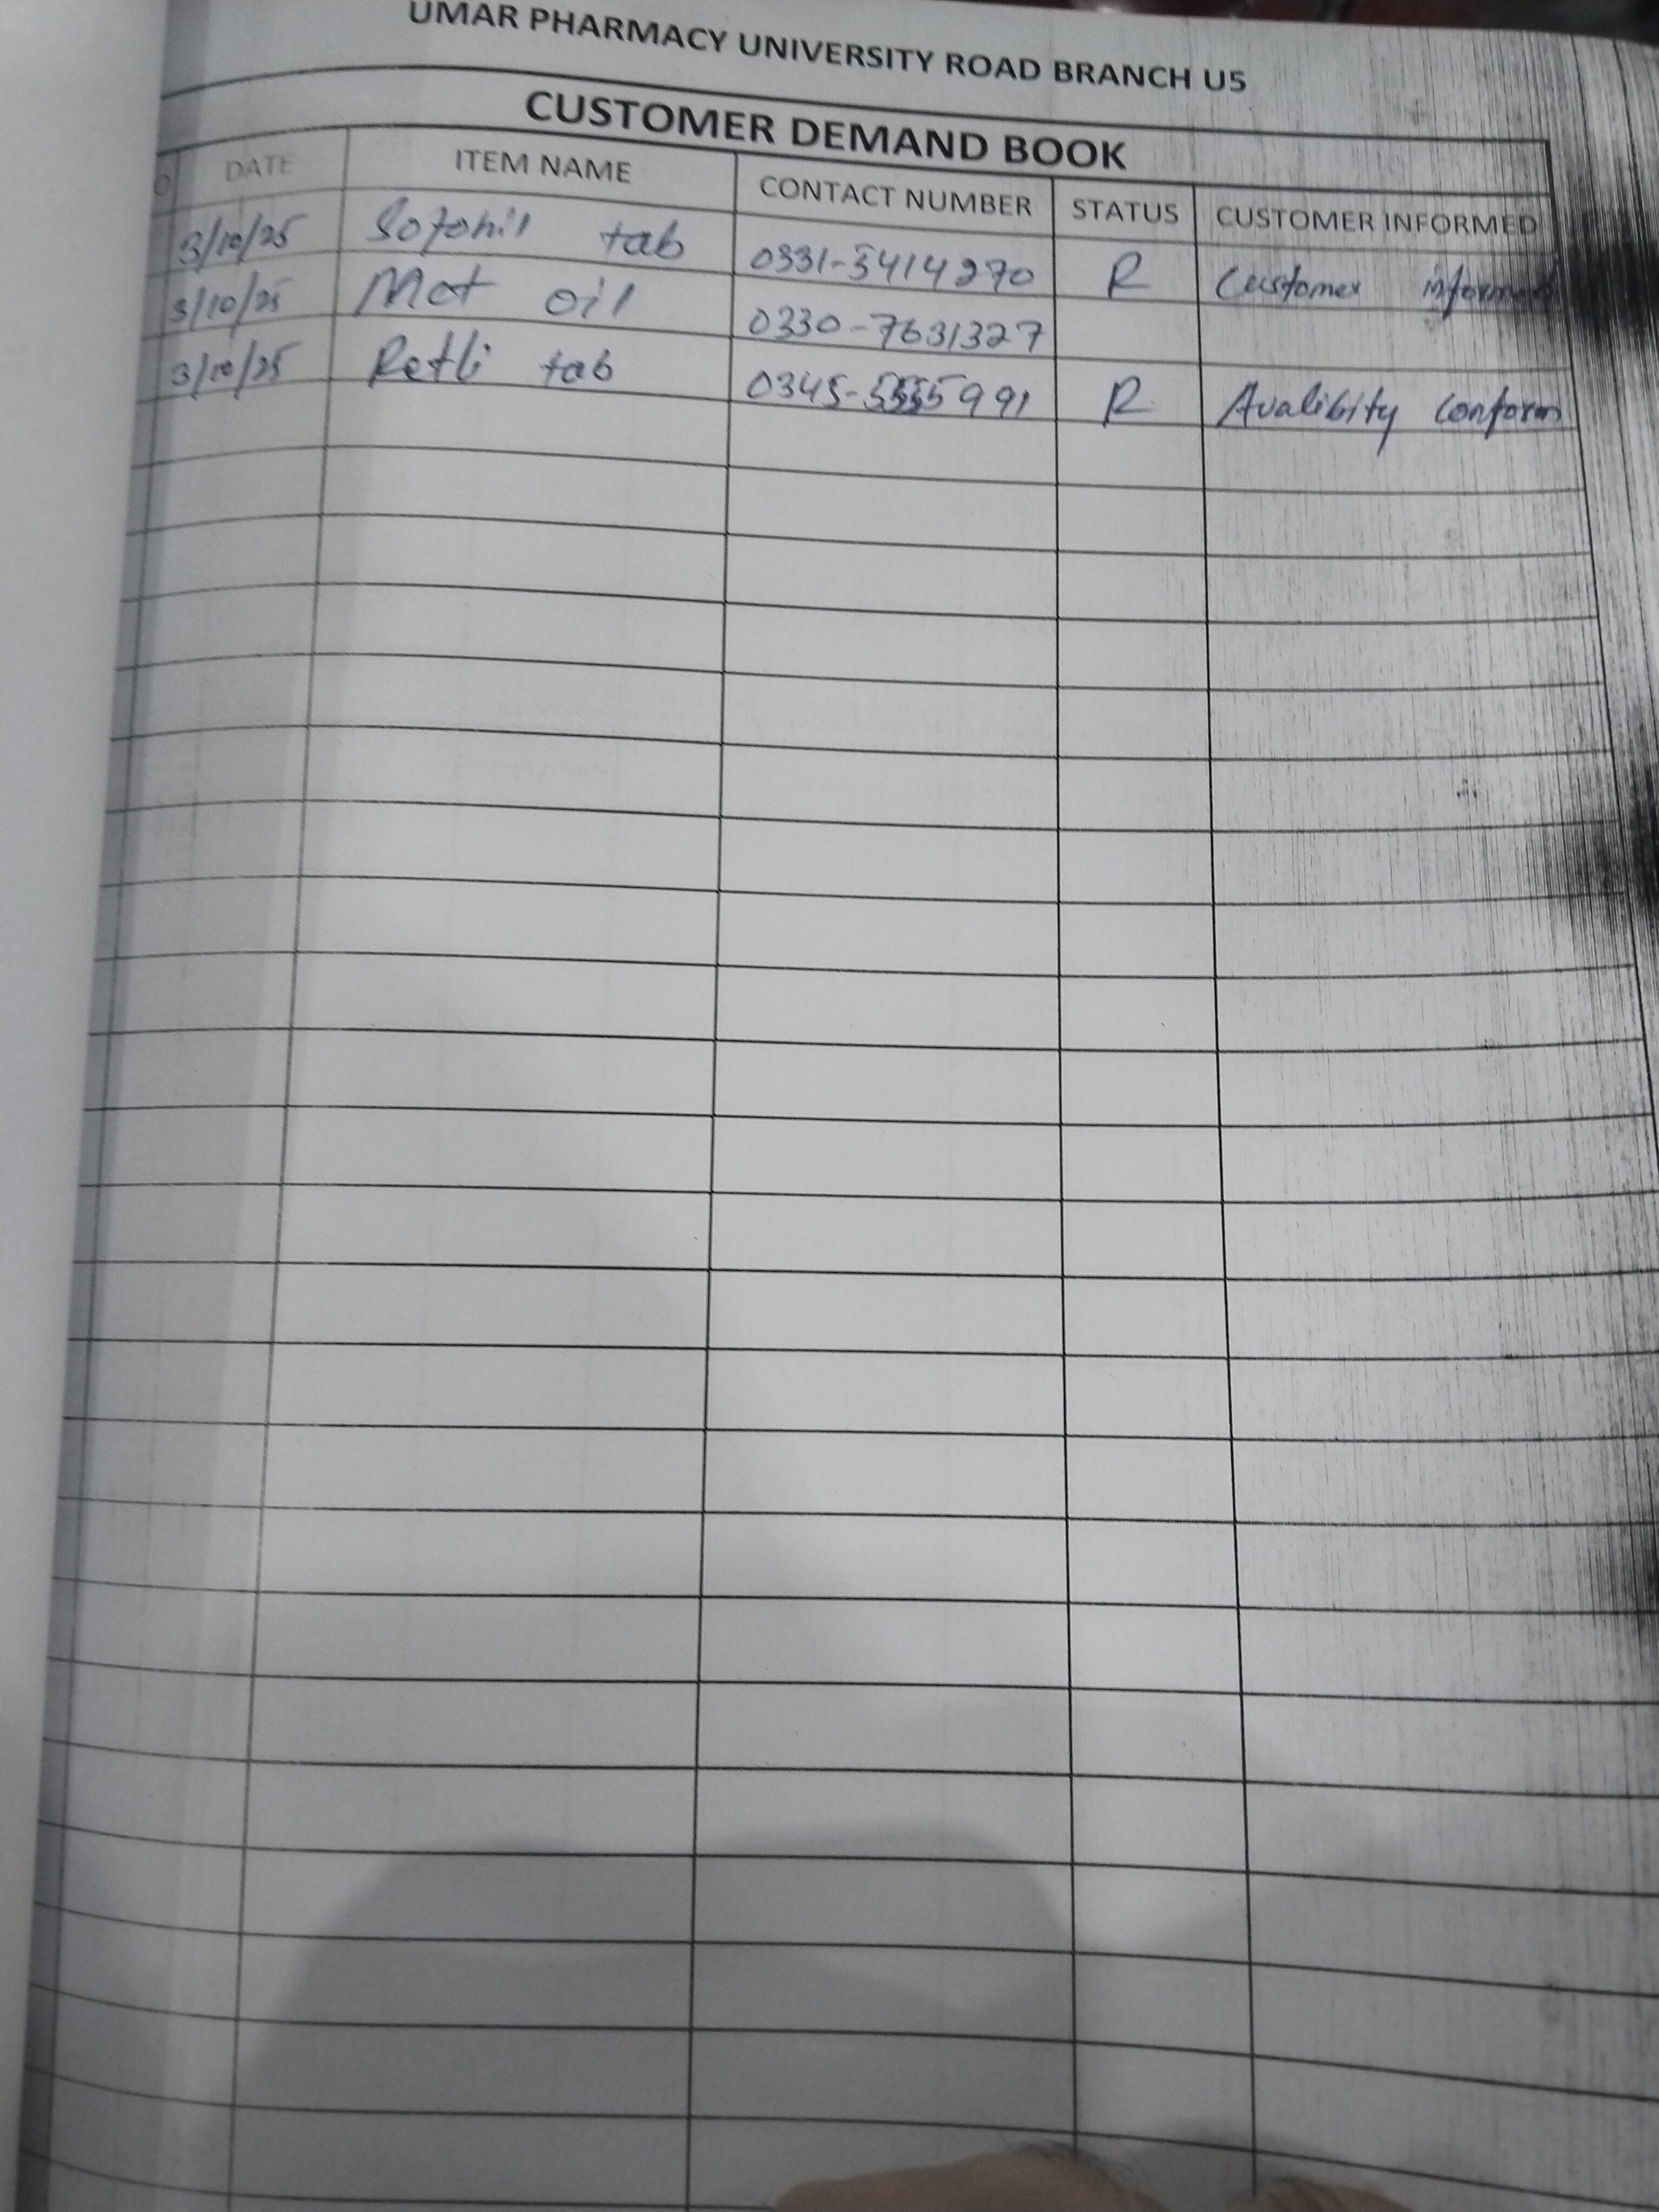 UMAR PHARMACY UNIVERSITY ROAD BRANCH U5
CUSTOMER DEMAND BOOK
DATE ITEM NAME CONTACT NUMBER STATUS CUSTOMER INFORMED
3/10/25 tab 0331-5414270 R Customer informed
3/10/25 Mot oil 0330-7631327
3/10/25 Retli tab 0345-5555991 R Avalibity conform